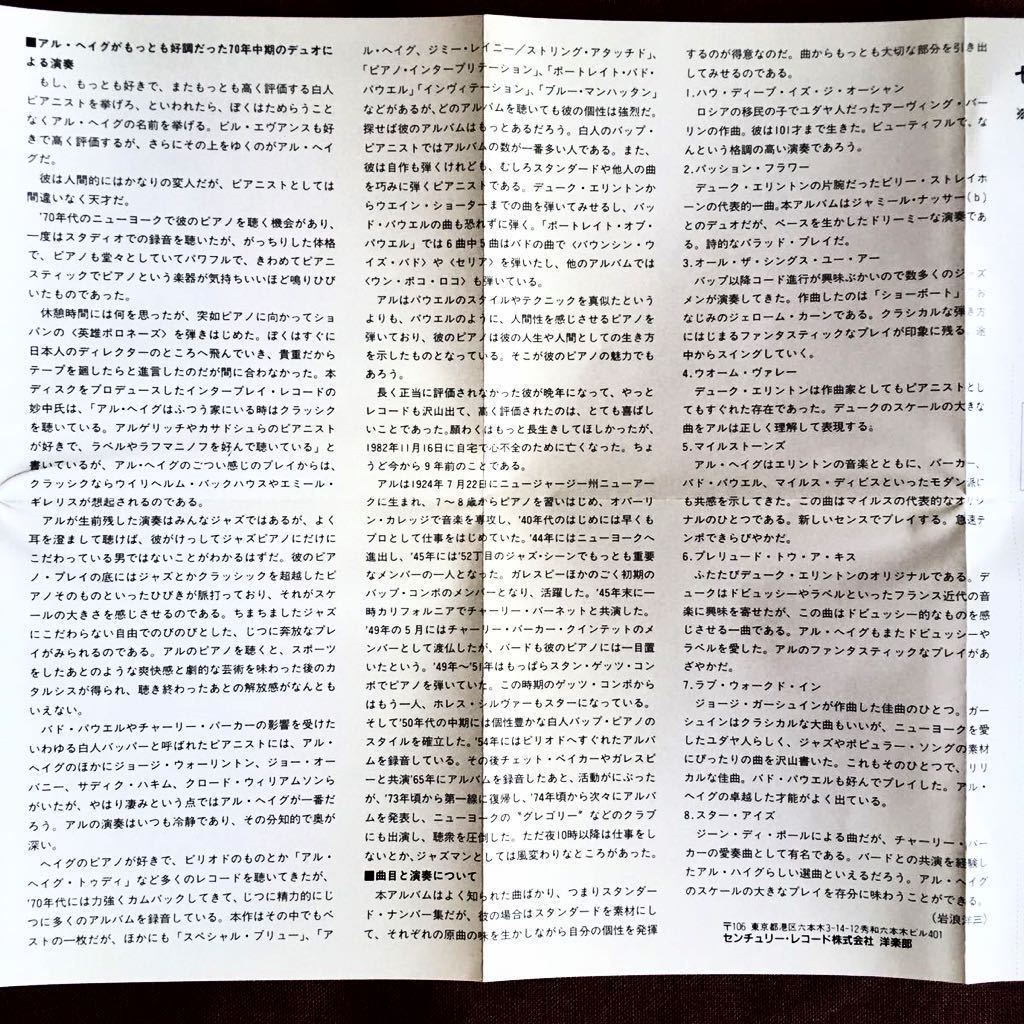 ■アル・ヘイグがもっとも好調だった70年中期のデュオに
よる演奏
もし、もっとも好きで、またもっとも高く評価する白人
ピアニストを挙げろ、といわれたら、ぼくはためらうこと
なくアル・ヘイグの名前を挙げる。ビル・エヴァンスも好
きで高く評価するが、さらにその上をゆくのがアル・ヘイ
グだ。
彼は人間的にはかなりの変人だが、ピアニストとしては
間違いなく天才だ。
'70年代のニューヨークで彼のピアノを聴く機会があり、
一度はスタディオでの録音を聴いたが、がっちりした体格
で、ピアノも堂々としていてパワフルで、きわめてピアニ
スティックでピアノという楽器が気持ちいいほど鳴りひび
いたものであった。
休憩時間には何を思ったか、突如ピアノに向かってショ
パンの〈英雄ポロネーズ〉を弾きはじめた。ぼくはすぐに
日本人のディレクターのところへ飛んでいき、貴重だから
テープを廻したらと進言したのだが間に合わなかった。本
ディスクをプロデュースしたインタープレイ・レコードの
妙中氏は、「アル・ヘイグはふつう家にいる時はクラシック
を聴いている。アルゲリッチやカサドシュらのピアニスト
が好きで、ラベルやラフマニノフを好んで聴いている」と
書いているが、アル・ヘイグのごつい感じのプレイからは、
クラシックならウイリヘルム・バックハウスやエミール・
ギレリスが想起されるのである。
アルが生前残した演奏はみんなジャズではあるが、よく
耳を澄まして聴けば、彼がけっしてジャズピアノにだけに
こだわっている男ではないことがわかるはずだ。彼のピア
ノ・プレイの底にはジャズとかクラシックを超越したピ
アノそのものといったひびきが脈打っており、それがスケ
ールの大きさを感じさせるのである。ちまちましたジャズ
にこだわらない自由でのびのびとした、じつに奔放なプレ
イがみられるのである。アルのピアノを聴くと、スポーツ
をしたあとのような爽快感と劇的な芸術を味わった後のカ
タルシスが得られ、聴き終わったあとの解放感がなんとも
いえない。
バド・パウエルやチャーリー・パーカーの影響を受けた
いわゆる白人バッパーと呼ばれたピアニストには、アル・
ヘイグのほかにジョージ・ウォーリントン、ジョー・オー
バニー、サディク・ハキム、クロード・ウィリアムソンら
がいたが、やはり凄みという点ではアル・ヘイグが一番だ
ろう。アルの演奏はいつも冷静であり、その分知的で奥が
深い。
ヘイグのピアノが好きで、ピリオドのものとか「アル・
ヘイグ・トゥディ」など多くのレコードを聴いてきたが、
'70年代には力強くカムバックしてきて、じつに精力的にじ
つに多くのアルバムを録音している。本作はその中でもベ
ストの一枚だが、ほかにも「スペシャル・ブリュー」、「ア
ル・ヘイグ、ジミー・レイニー／ストリング・アタッチド」、
「ピアノ・インタープリテーション」、「ポートレイト・バド・
パウエル」「インヴィテーション」、「ブルー・マンハッタン」
などがあるが、どのアルバムを聴いても彼の個性は強烈だ。
探せば彼のアルバムはもっとあるだろう。白人のバップ・
ピアニストではアルバムの数が一番多い人である。また、
彼は自作も弾くけれども、むしろスタンダードや他人の曲
を巧みに弾くピアニストである。デューク・エリントンか
らウエイン・ショーターまでの曲を弾いてみせるし、バッ
ド・パウエルの曲も恐れずに弾く。「ポートレイト・オブ・
パウエル」では6曲中5曲はバドの曲で〈バウンシン・ウ
イズ・バド〉や〈セリア〉を弾いたし、他のアルバムでは
〈ウン・ポコ・ロコ〉も弾いている。
アルはパウエルのスタイルやテクニックを真似たという
よりも、パウエルのように、人間性を感じさせるピアノを
弾いており、彼のピアノは彼の人生や人間としての生き方
を示したものとなっている。そこが彼のピアノの魅力でも
あろう。
長く正当に評価されなかった彼が晩年になって、やっと
レコードも沢山出て、高く評価されたのは、とても喜ばし
いことであった。願わくはもっと長生きしてほしかったが、
1982年11月16日に自宅で心不全のために亡くなった。ちょ
うど今から9年前のことである。
アルは1924年7月22日にニュージャージー州ニューアー
クに生まれ、7～8歳からピアノを習いはじめ、オバーリ
ン・カレッジで音楽を専攻し、'40年代のはじめには早くも
プロとして仕事をはじめていた。'44年にはニューヨークへ
進出し、'45年には'52丁目のジャズ・シーンでもっとも重要
なメンバーの一人となった。ガレスピーほかのごく初期の
バップ・コンボのメンバーとなり、活躍した。'45年末に一
時カリフォルニアでチャーリー・バーネットと共演した。
'49年の5月にはチャーリー・パーカー・クインテットのメ
ンバーとして渡仏したが、バードも彼のピアノには一目置
いたという。'49年～'51年はもっぱらスタン・ゲッツ・コン
ボでピアノを弾いていた。この時期のゲッツ・コンボから
はもう一人、ホレス・シルヴァーもスターになっている。
そして'50年代の中期には個性豊かな白人バップ・ピアノの
スタイルを確立した。'54年にはピリオドへすぐれたアルバ
ムを録音している。その後チェット・ベイカーやガレスピ
ーと共演'65年にアルバムを録音したあと、活動がにぶった
が、'73年頃から第一線に復帰し、'74年頃から次々にアルバ
ムを発表し、ニューヨークの〝グレゴリー〟などのクラブ
にも出演し、聴衆を圧倒した。ただ夜10時以降は仕事をし
ないとか、ジャズマンとしては風変わりなところがあった。
■曲目と演奏について
本アルバムはよく知られた曲ばかり、つまりスタンダー
ド・ナンバー集だが、彼の場合はスタンダードを素材にし
て、それぞれの原曲の味を生かしながら自分の個性を発揮
するのが得意なのだ。曲からもっとも大切な部分を引き出
してみせるのである。
1.ハウ・ディープ・イズ・ジ・オーシャン
ロシアの移民の子でユダヤ人だったアーヴィング・バー
リンの作曲。彼は101才まで生きた。ビューティフルで、な
んという格調の高い演奏であろう。
2.パッション・フラワー
デューク・エリントンの片腕だったビリー・ストレイホ
ーンの代表的一曲。本アルバムはジャミール・ナッサー(b)
とのデュオだが、ベースを生かしたドリーミーな演奏であ
る。詩的なバラッド・プレイだ。
3.オール・ザ・シングス・ユー・アー
バップ以降コード進行が興味ぶかいので数多くのジャズ
メンが演奏してきた。作曲したのは「ショーボート」でお
なじみのジェローム・カーンである。クラシカルな弾き方
にはじまるファンタスティックなプレイが印象に残る。途
中からスイングしていく。
4.ウオーム・ヴァレー
デューク・エリントンは作曲家としてもピアニストとし
てもすぐれた存在であった。デュークのスケールの大きな
曲をアルは正しく理解して表現する。
5.マイルストーンズ
アル・ヘイグはエリントンの音楽とともに、パーカー、
バド・パウエル、マイルス・デイビスといったモダン派に
も共感を示してきた。この曲はマイルスの代表的なオリジ
ナルのひとつである。新しいセンスでプレイする。急速テ
ンポできらびやかだ。
6.プレリュード・トウ・ア・キス
ふたたびデューク・エリントンのオリジナルである。デ
ュークはドビュッシーやラベルといったフランス近代の音
楽に興味を寄せたが、この曲はドビュッシー的なものを感
じさせる一曲である。アル・ヘイグもまたドビュッシーや
ラベルを愛した。アルのファンタスティックなプレイがあ
ざやかだ。
7.ラブ・ウォークド・イン
ジョージ・ガーシュインが作曲した佳曲のひとつ。ガー
シュインはクラシカルな大曲もいいが、ニューヨークを愛
したユダヤ人らしく、ジャズやポピュラー・ソングの素材
にぴったりの曲を沢山書いた。これもそのひとつで、リリ
カルな佳曲。バド・パウエルも好んでプレイした。アル・
ヘイグの卓越した才能がよく出ている。
8.スター・アイズ
ジーン・ディ・ポールによる曲だが、チャーリー・パー
カーの愛奏曲として有名である。バードとの共演を経験し
たアル・ハイグらしい選曲といえるだろう。アル・ヘイグ
のスケールの大きなプレイを存分に味わうことができる。
(岩浪洋三)
〒106 東京都港区六本木3-14-12秀和六本木ビル401
センチュリー・レコード株式会社 洋楽部